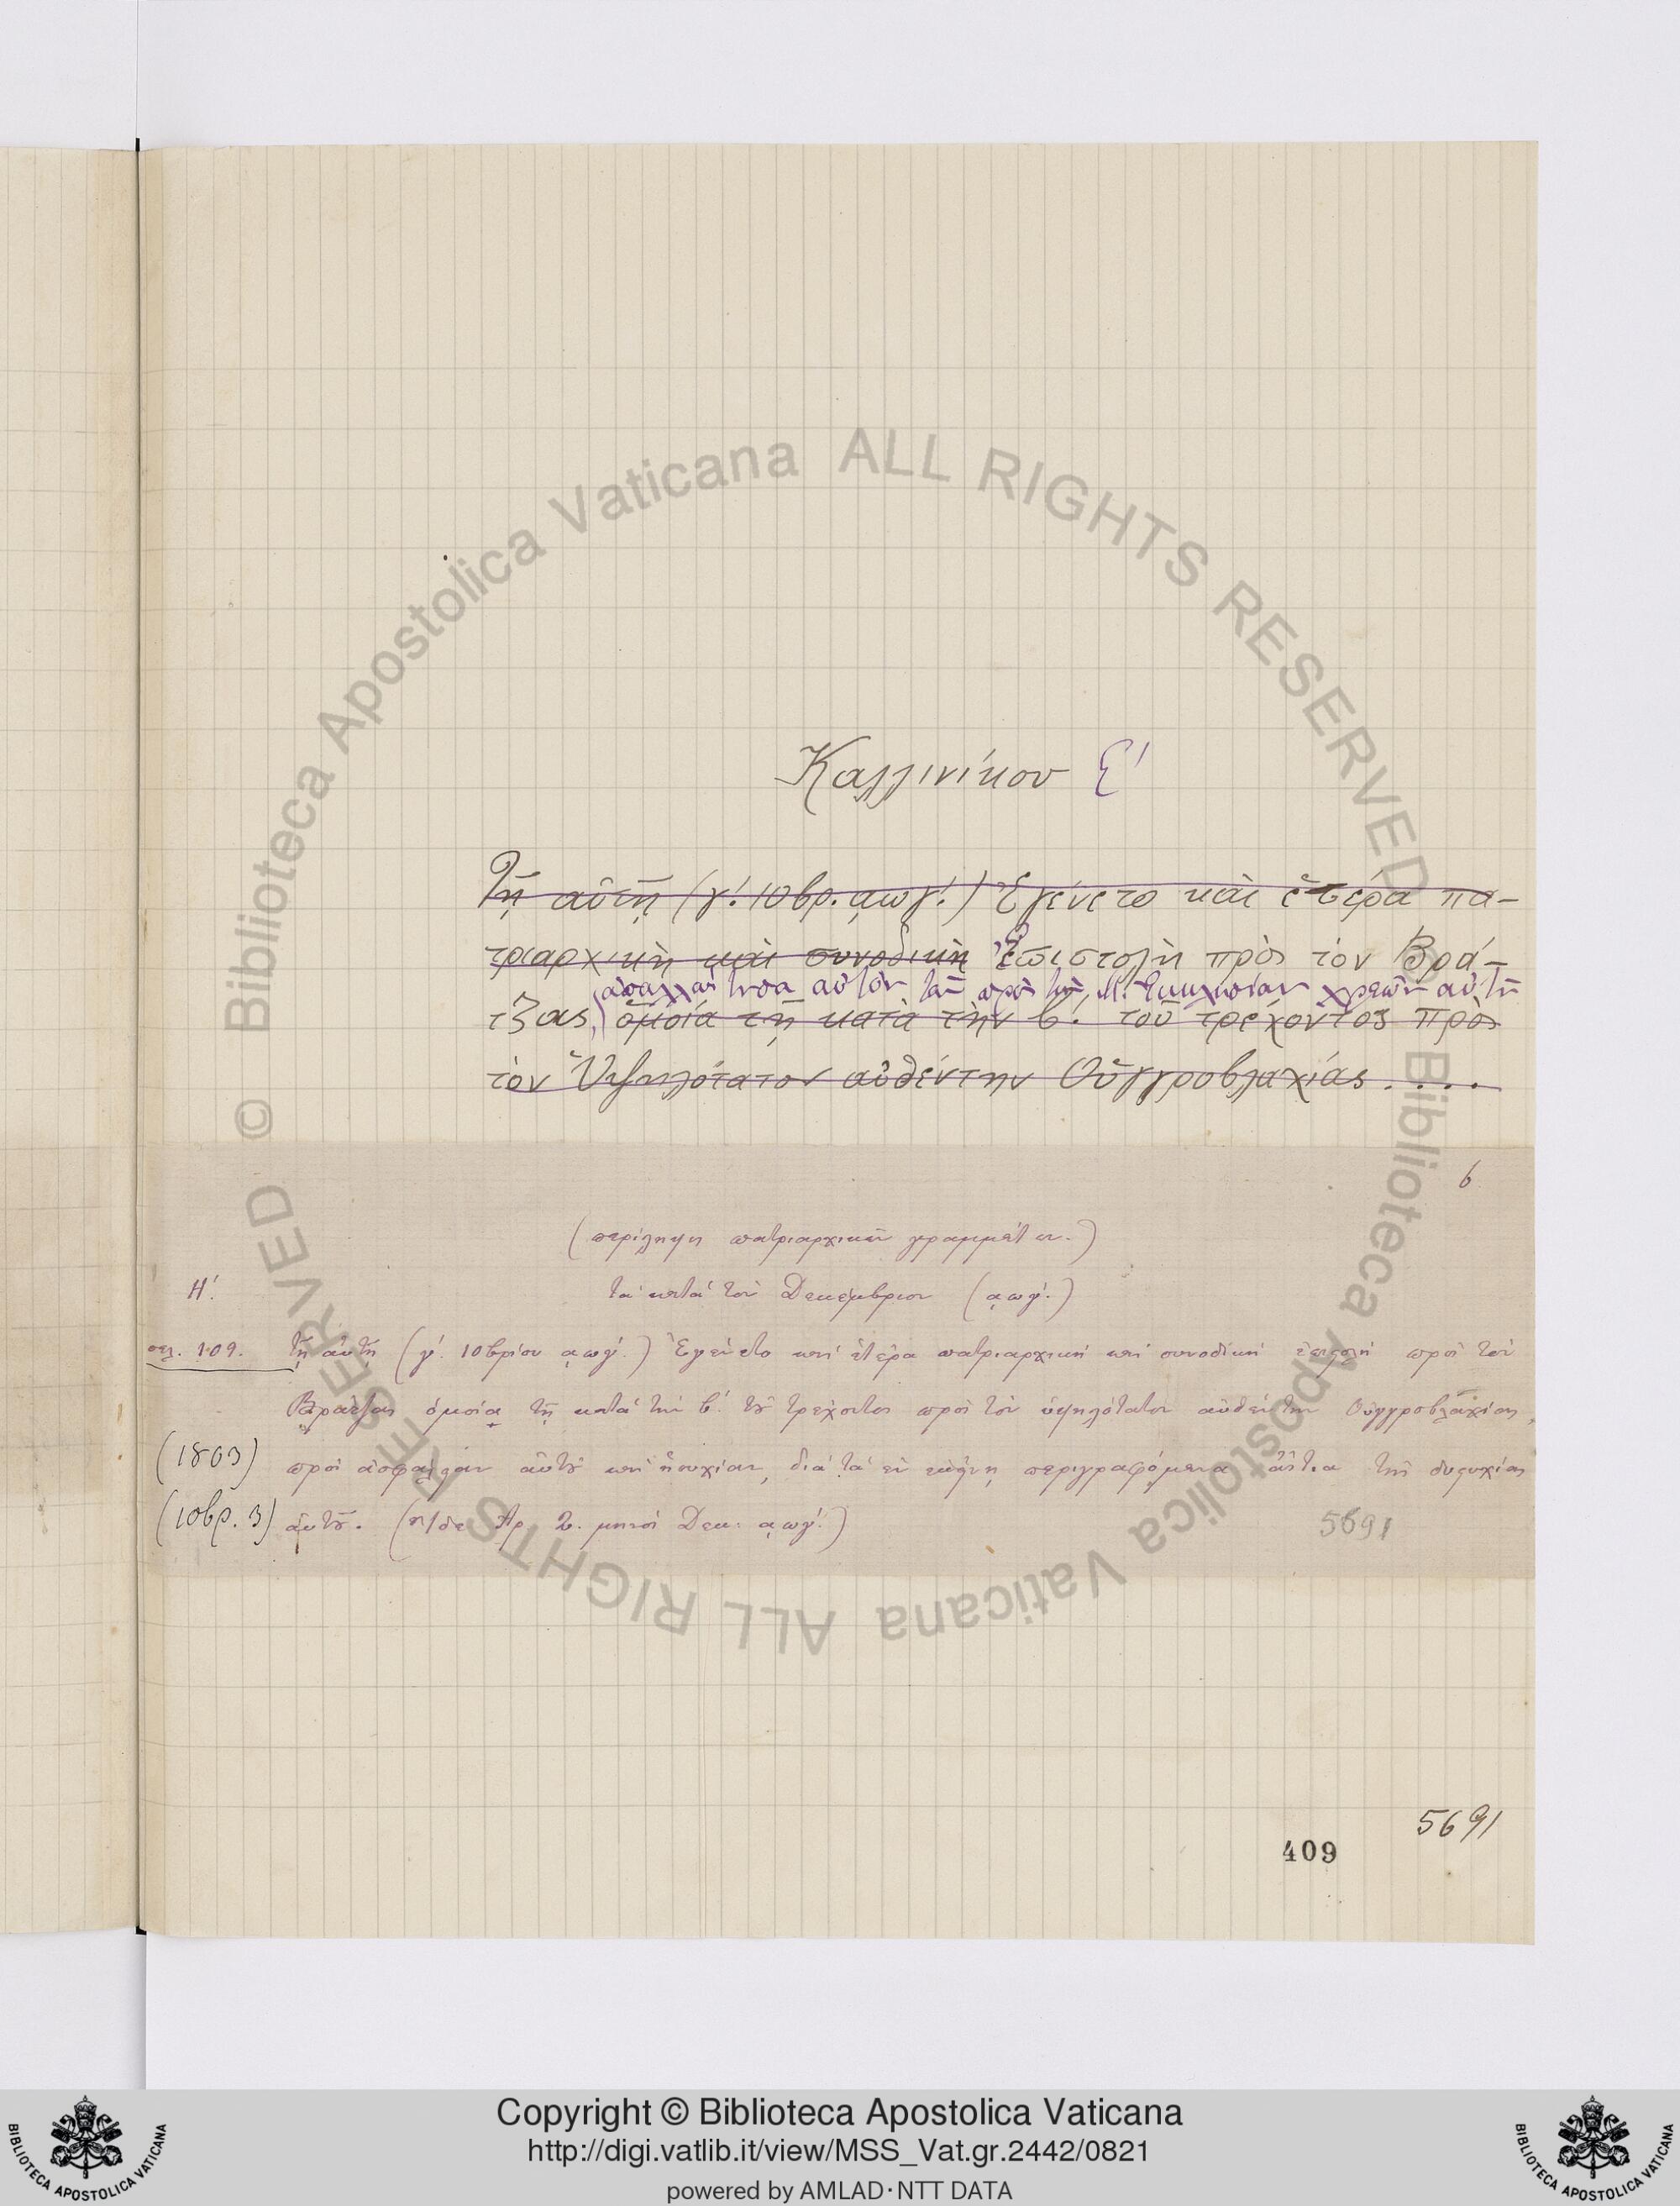 Καλλινίκου Ε΄
Τῇ αὐτῇ (γ΄. 10βρ. ͵αωγ΄.) Ἐγένετο καὶ ἑτέρα πα-
τριαρχικὴ καὶ συνοδικὴ Ἐπιστολὴ πρὸς τὸν Βρά-
αὐτὸν τῶν πρὸς τὴν Μ. Ἐκκλησίαν χρεῶν αὐτῆς
τζας, ὁμοία τῇ κατὰ τὴν β΄. τοῦ τρέχοντος πρὸς
τὸν Ὑψηλότατον αὐθέντην Οὐγγροβλαχίας....
6
(περίληψη πατριαρχικῶν γραμμάτων.)
Η΄. τὰ κατὰ τὸν Δεκέμβριον (͵αωγ΄.)
σελ. 109. τῇ αὐτῇ (γ΄. 10βρίου ͵αωγ΄.) Ἐγένετο καὶ ἑτέρα πατριαρχικὴ καὶ συνοδικὴ ἐπιστολὴ πρὸς τὸν
Βράτζας ὁμοία τῇ κατὰ τὴν β΄. τοῦ τρέχοντος πρὸς τὸν ὑψηλότατον αὐθέντην Οὐγγροβλαχίας,
(1803) πρὸς ἀσφάλειαν αὐτοῦ καὶ ἡσυχίαν, διὰ τὰ ἐν ἐκείνῃ περιγραφόμενα αἴτια τῆς δυστυχίας
(10βρ. 3) αὐτοῦ. ( Ἀρ. 2. μηνὸς Δεκ. ͵αωγ΄.) 5691
5691
409
Copyright © Biblioteca Apostolica Vaticana
http://digi.vatlib.it/view/MSS_Vat.gr.2442/0821
powered by AMLAD·NTT DATA
© Biblioteca Apostolica Vaticana ALL RIGHTS RESERVED
© Biblioteca Apostolica Vaticana ALL RIGHTS RESERVED
BIBLIOTECA APOSTOLICA VATICANA
BIBLIOTECA APOSTOLICA VATICANA